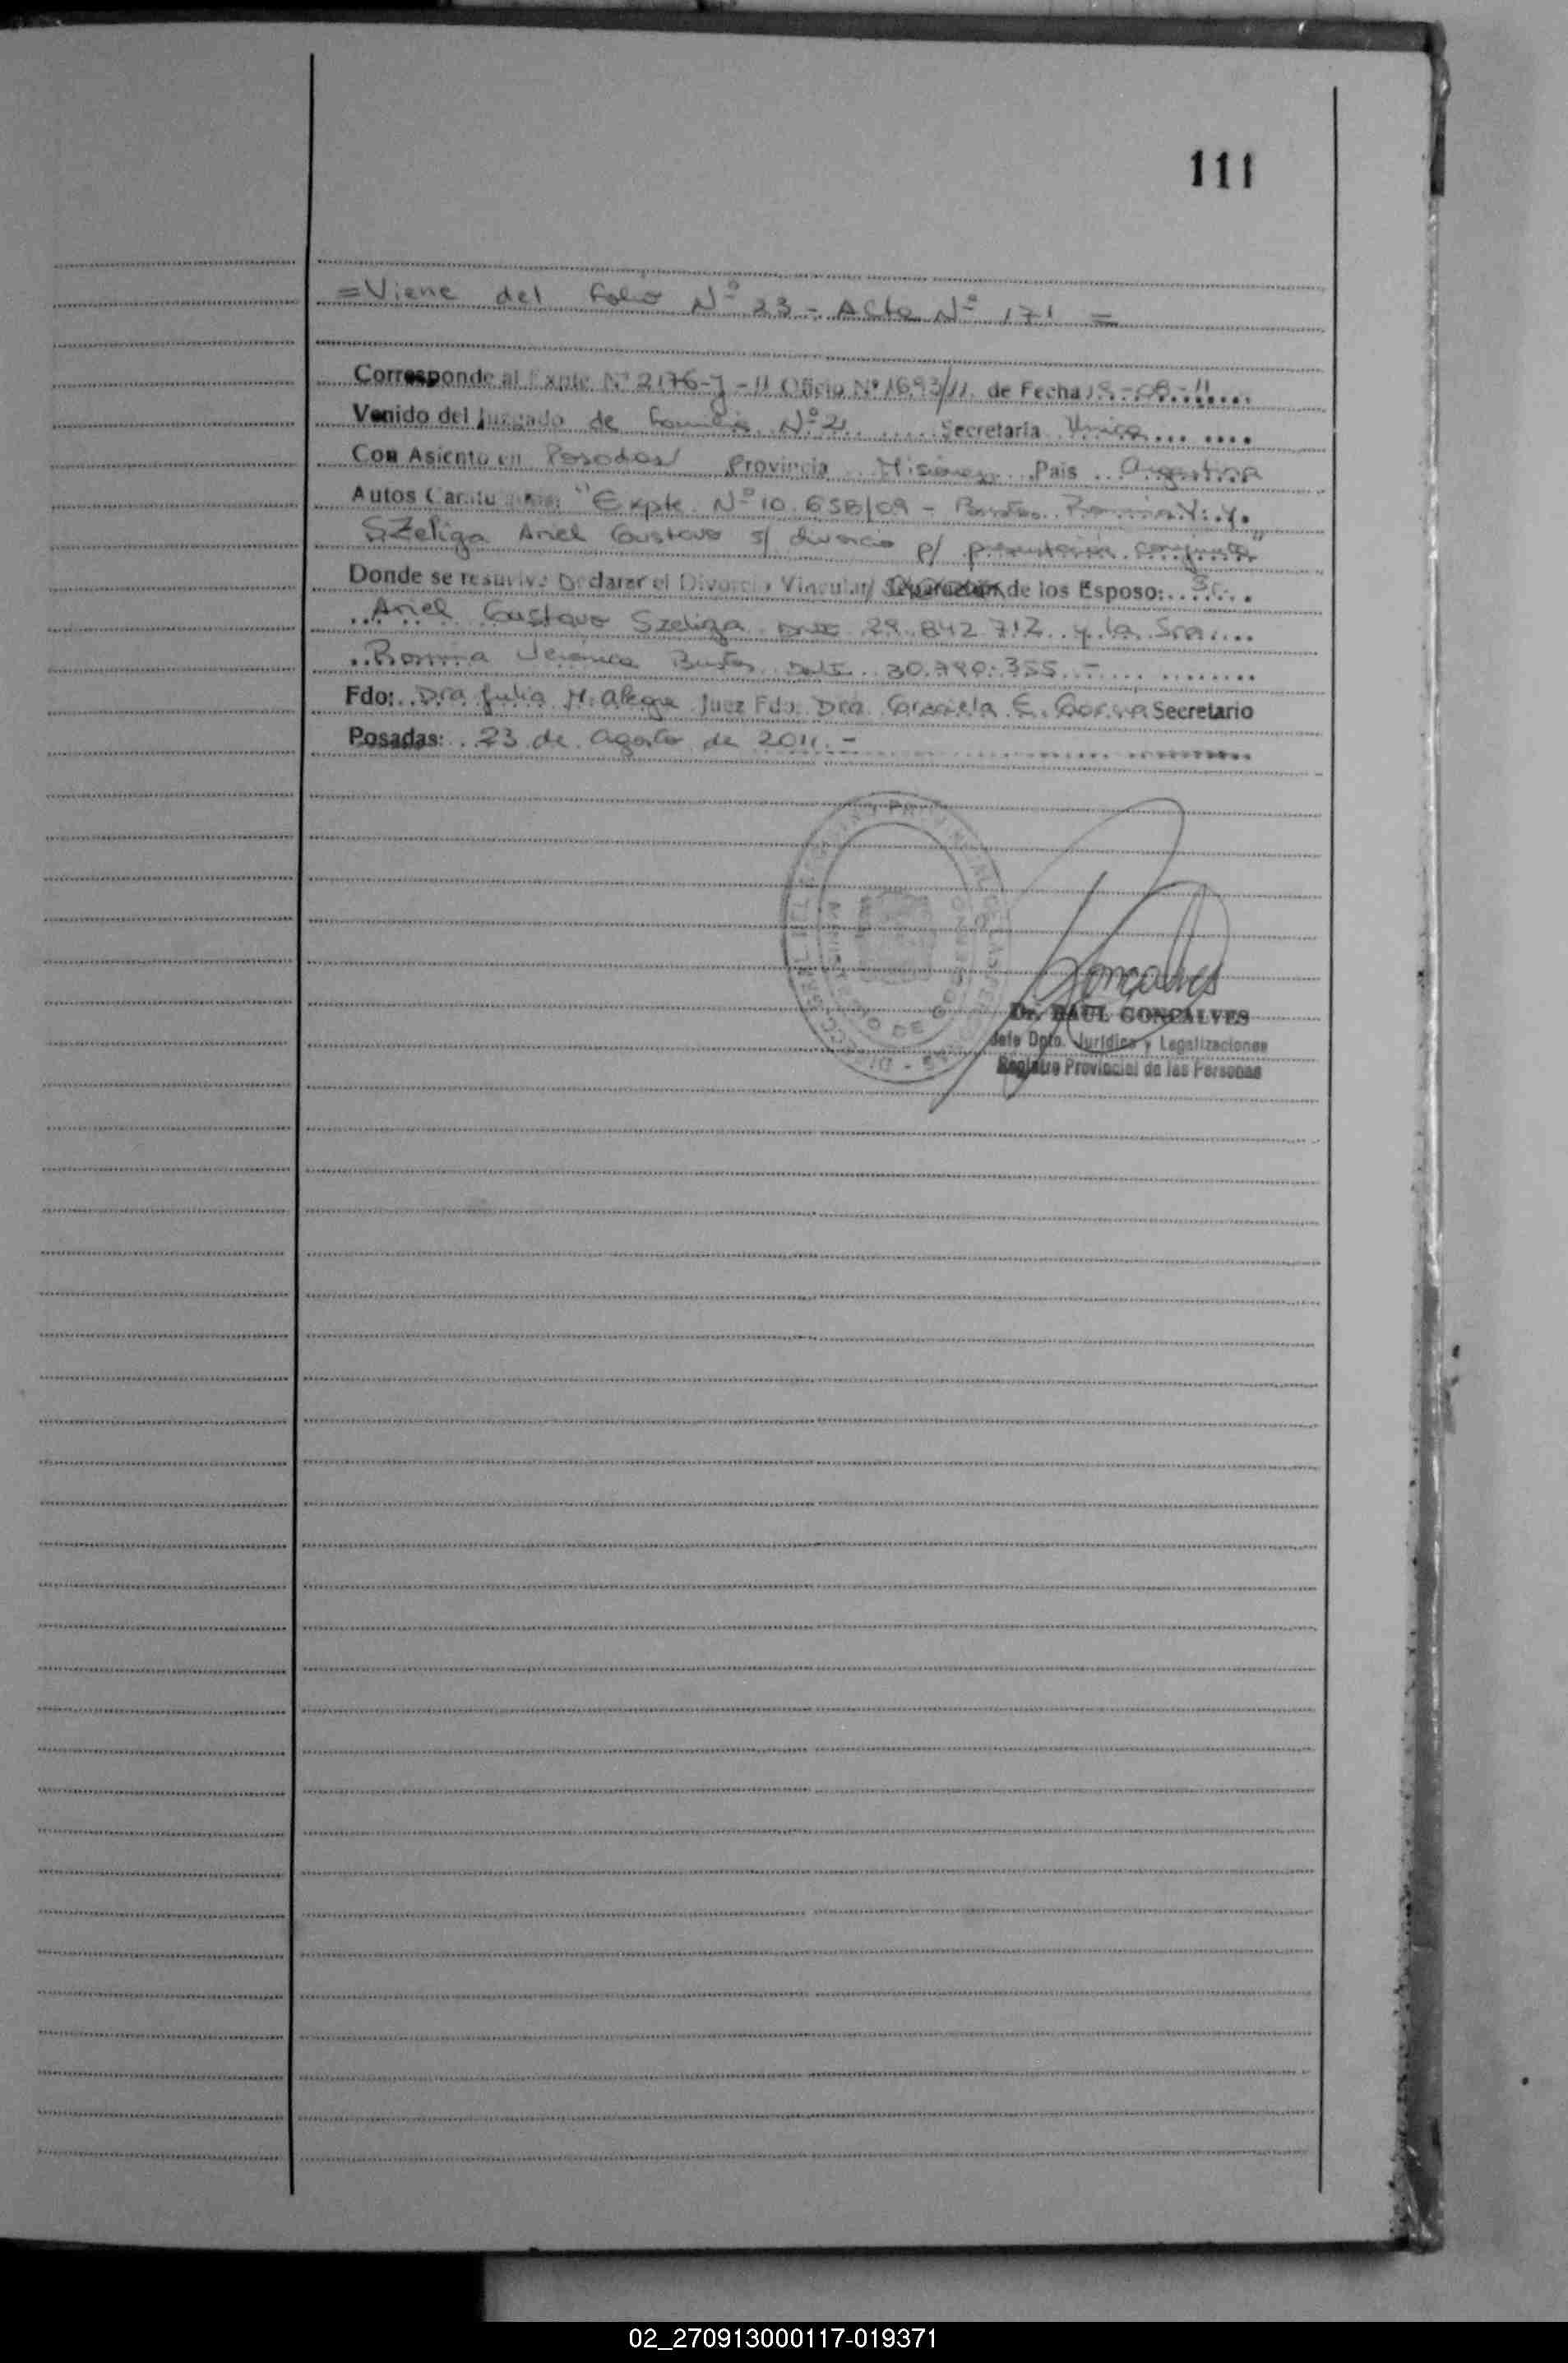 111
=Viene del Folio Nº 23 - Acta Nº 171 =
Corresponde al Expte Nº 2176-J-11 Oficio Nº 1693/11 de Fecha 18-08-11
Venido del Juzgado de Familia Nº 2 Secretaría Unica
Con Asiento en Posadas Provincia Misiones País Argentina
Autos "Expte. Nº 10.658/09 - Bustos Romina V. y
Szeliga Ariel Gustavo s/ divorcio p/ presentación conjunta"
Donde se resuelve Declarar el Divorcio Vincular/ Separación de los Esposo:
Ariel Gustavo Szeliga DNI 29.842.712 y la Sra
Romina Veronica Bustos 30.790.355.-
Fdo: Dra Julia M. Alegre Juez Fdo. Dra Graciela E. Secretario
Posadas: 23 de Agosto de 2011.-
MINISTERIO DE GOBIERNO
Goncalves
Dr. RAUL GONCALVES
Jefe Dpto. Jurídico y Legalizaciones
Registro Provincial de las Personas
02_270913000117-019371